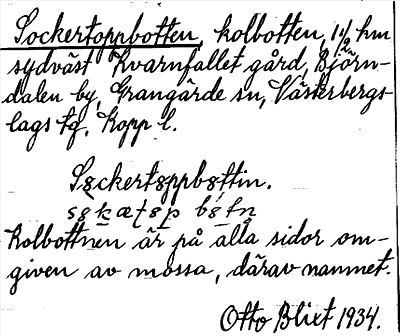 Sockertoppbotten, kolbotten, 1 1/2 km
sydväst Kvarnfallet gård, Björn-
dalen by, Grangärde sn, Västerbergs-
lags fg. Kopp l.
Sockertoppbottin.
Kolbottnen är på alla sidor om-
given av mossa, därav namnet.
Otto Blixt 1934.